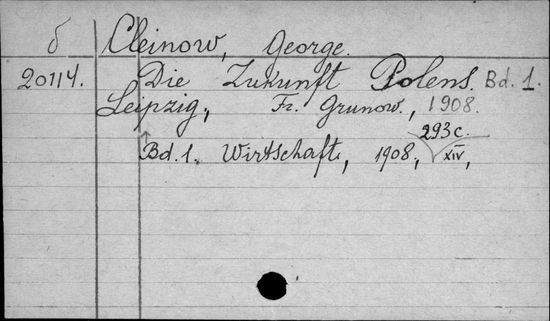 б Cleinow, George.
20114. Die Zukunft Polens. Bd. 1.
Leipzig, Fr. Grunow., 1908.
293 c.
Bd. 1. Wirtschaft, 1908, XIV,